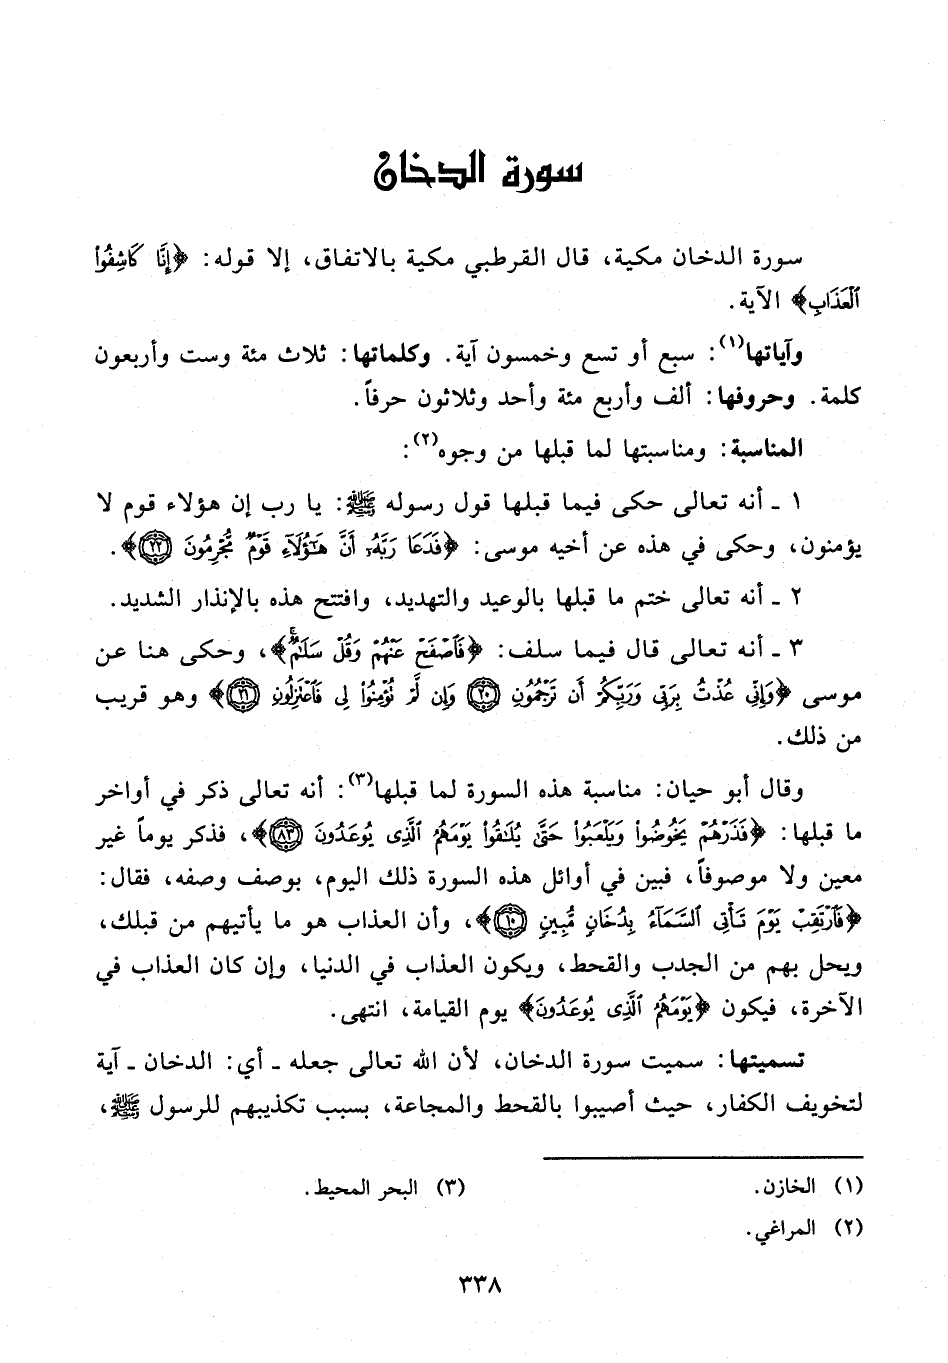 سورة الدخان
سورة الدخان مكية، قال القرطبي مكية بالاتفاق، إلا قوله: ﴿إِنَّا كَاشِفُوا۟
ٱلْعَذَابِ﴾ الآية.
وآياتها(١): سبع أو تسع وخمسون آية. وكلماتها: ثلاث مئة وست وأربعون
كلمة. وحروفها: ألف وأربع مئة وأحد وثلاثون حرفاً.
المناسبة: ومناسبتها لما قبلها من وجوه(٢):
١ ـ أنه تعالى حكى فيما قبلها قول رسوله ﷺ: يا رب إن هؤلاء قوم لا
يؤمنون، وحكى في هذه عن أخيه موسى: ﴿فَدَعَا رَبَّهُۥٓ أَنَّ هَـٰٓؤُلَآءِ قَوْمٌ مُّجْرِمُونَ ٢٢﴾.
٢ ـ أنه تعالى ختم ما قبلها بالوعيد والتهديد، وافتتح هذه بالإنذار الشديد.
٣ ـ أنه تعالى قال فيما سلف: ﴿فَٱصْفَحْ عَنْهُمْ وَقُلْ سَلَـٰمٌ ۚ﴾، وحكى هنا عن
موسى ﴿وَإِنِّى عُذْتُ بِرَبِّى وَرَبِّكُمْ أَن تَرْجُمُونِ ٢٠ وَإِن لَّمْ تُؤْمِنُوا۟ لِى فَٱعْتَزِلُونِ ٢١﴾ وهو قريب
من ذلك.
وقال أبو حيان: مناسبة هذه السورة لما قبلها(٣): أنه تعالى ذكر في أواخر
ما قبلها: ﴿فَذَرْهُمْ يَخُوضُوا۟ وَيَلْعَبُوا۟ حَتَّىٰ يُلَـٰقُوا۟ يَوْمَهُمُ ٱلَّذِى يُوعَدُونَ ٨٣﴾، فذكر يوماً غير
معين ولا موصوفاً، فبين في أوائل هذه السورة ذلك اليوم، بوصف وصفه، فقال:
﴿فَٱرْتَقِبْ يَوْمَ تَأْتِى ٱلسَّمَآءُ بِدُخَانٍ مُّبِينٍ ١٠﴾، وأن العذاب هو ما يأتيهم من قبلك،
ويحل بهم من الجدب والقحط، ويكون العذاب في الدنيا، وإن كان العذاب في
الآخرة، فيكون ﴿يَوْمَهُمُ ٱلَّذِى يُوعَدُونَ﴾ يوم القيامة، انتهى.
تسميتها: سميت سورة الدخان، لأن الله تعالى جعله ـ أي: الدخان ـ آية
لتخويف الكفار، حيث أصيبوا بالقحط والمجاعة، بسبب تكذيبهم للرسول ﷺ،
(١) الخازن.
(٢) المراغي.
(٣) البحر المحيط.
٣٣٨